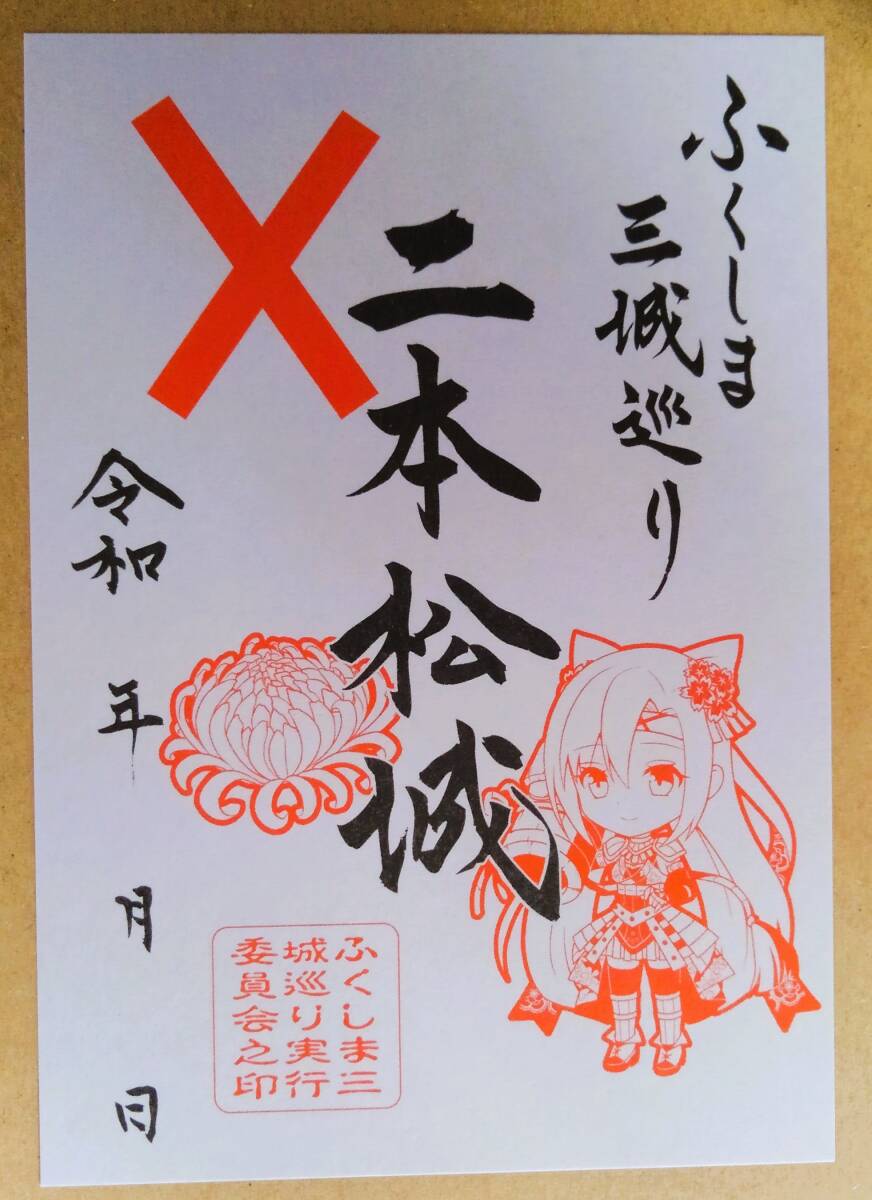 ふくしま
三城巡り
二本松城
令和 年 月 日
ふくしま三
城巡り実行
委員会之印